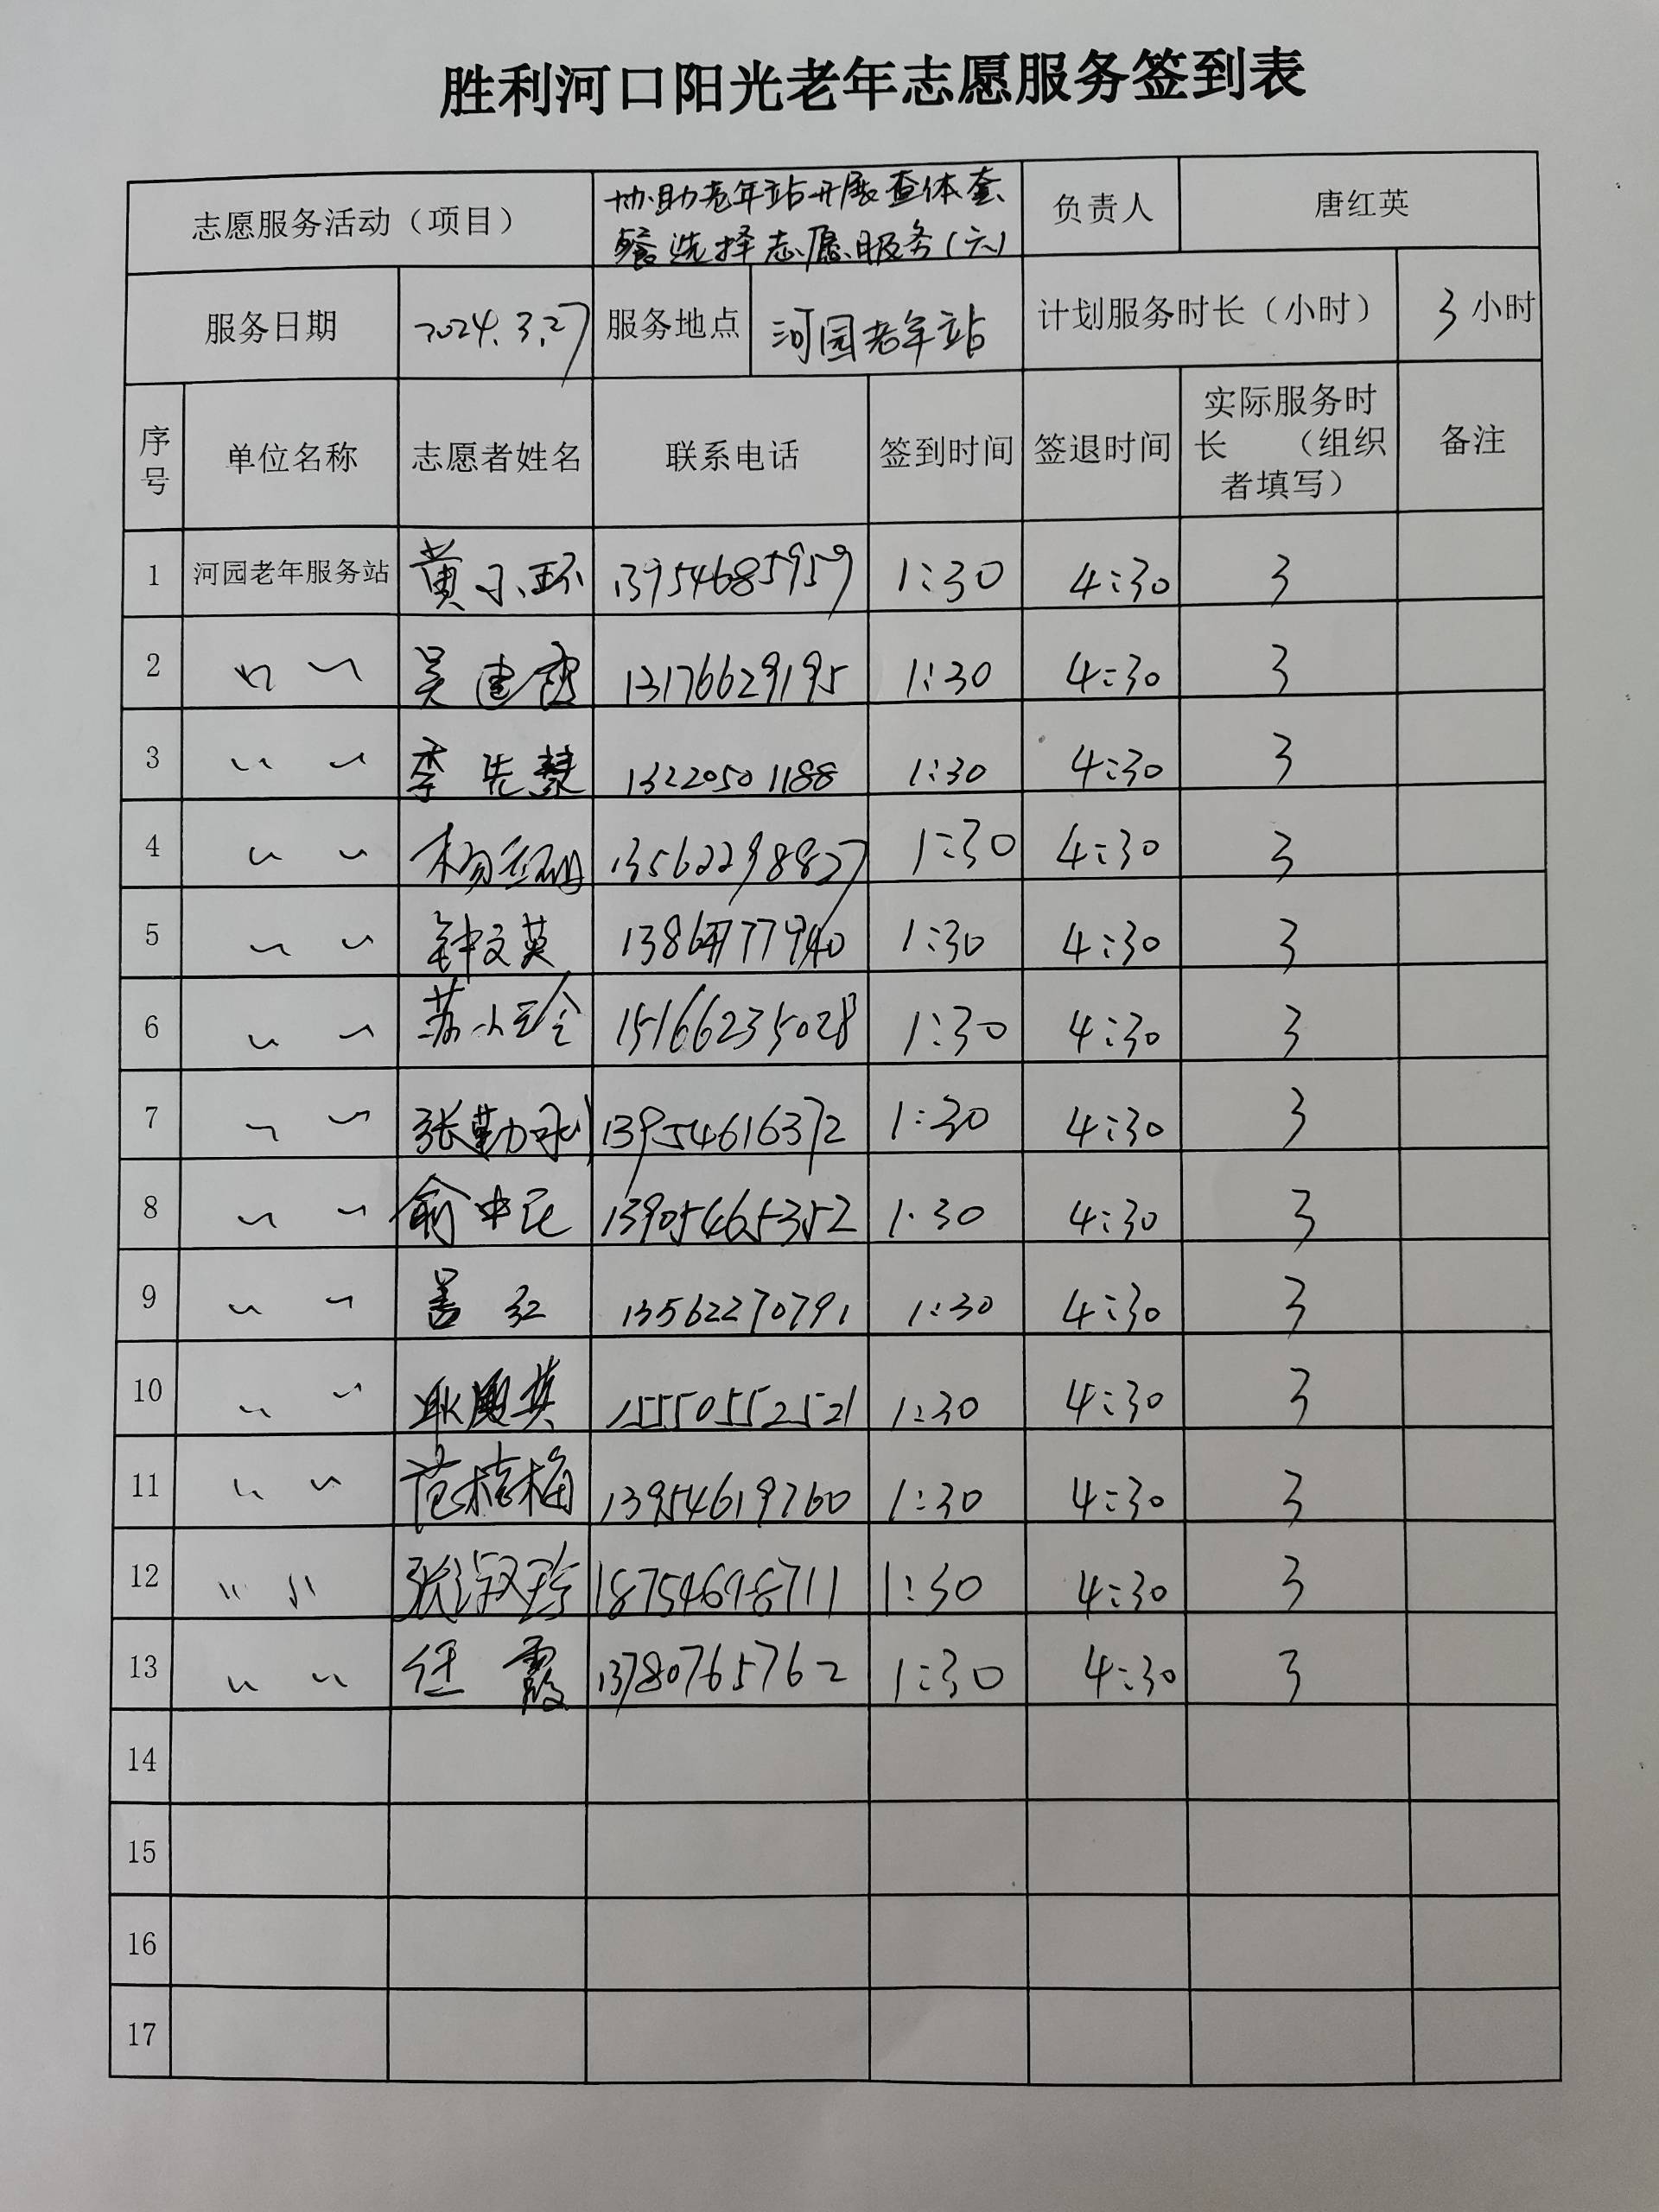 胜利河口阳光老年志愿服务签到表
志愿服务活动（项目） 协助老年站开展查体套餐选择志愿服务(六) 负责人 唐红英
服务日期 2024.3.27 服务地点 河园老年站 计划服务时长（小时） 3小时
序号 单位名称 志愿者姓名 联系电话 签到时间 签退时间 实际服务时长（组织者填写） 备注
1 河园老年服务站 黄小环 13954685959 1:30 4:30 3
2 〃 〃 吴建 13176629195 1:30 4:30 3
3 〃 〃 李先慧 13220501188 1:30 4:30 3
4 〃 〃 杨 13562298827 1:30 4:30 3
5 〃 〃 钟文英 1:30 4:30 3
6 〃 〃 苏小玲 15166235028 1:30 4:30 3
7 〃 〃 张勤 13954616372 1:30 4:30 3
8 〃 〃 俞中 13905465352 1:30 4:30 3
9 〃 〃 红 13562270791 1:30 4:30 3
10 〃 〃 耿 英 15550552521 1:30 4:30 3
11 〃 〃 范桂梅 13954619760 1:30 4:30 3
12 〃 〃 张淑珍 18754698711 1:30 4:30 3
13 〃 〃 任霞 13780765762 1:30 4:30 3
14
15
16
17